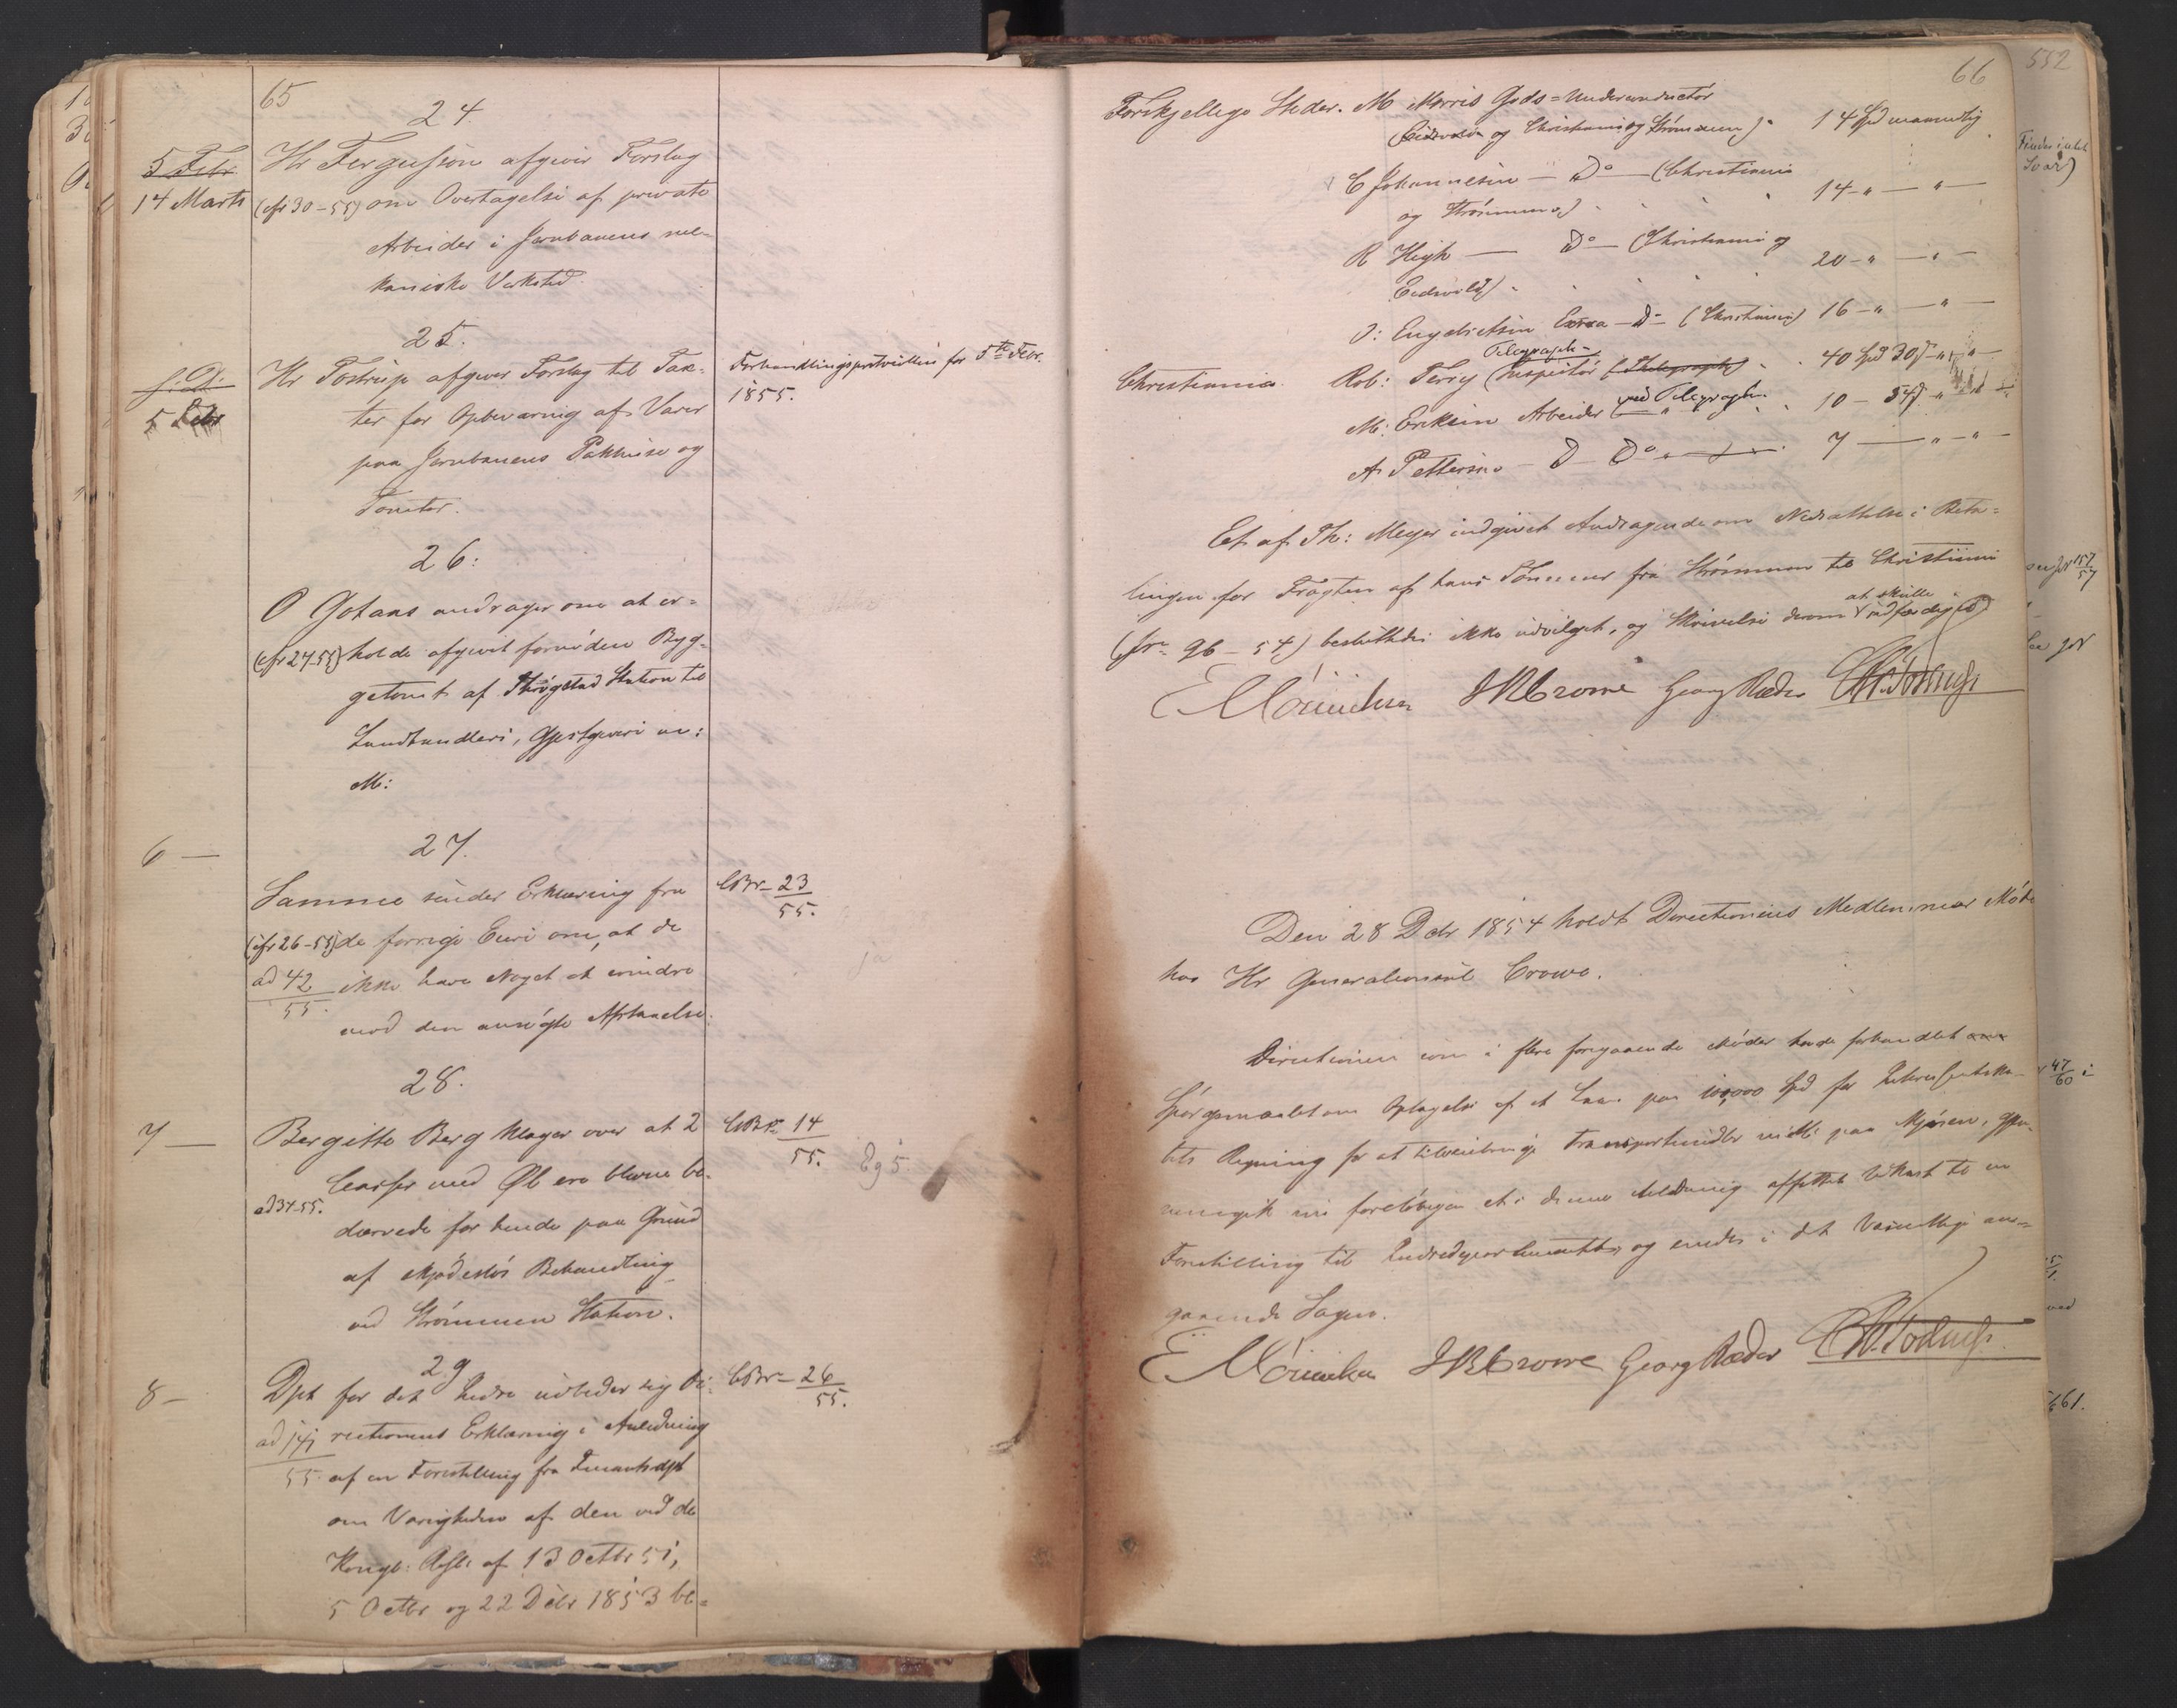 65
24.
5 Febr
14 Marts
Hr Ferguson afgiver Forslag
(cfr 30-55) om Overtagelse af private
Arbeider i Jernbanens me-
kaniske Verksted.
25.
s. D.
5 Febr
Hr Tostrup afgiver Forslag til Tax-
ter for Opbevaring af Varer
paa Jernbanens Pakhuse og
Tomter.
Forhandlingsprotocollen for 5te Febr.
1855.
26:
O Gotaas andrager om at er-
(cfr 27-55) holde afgivet fornöden Byg-
getomt af Trögstad Station til
Landhandleri, Gjestgiveri m:
M:
6 —
27.
Samme sender Erklæring fra
(cfr 26-55) de forrige Eiere om, at de
ad 42/55. ikke have Noget at erindre
mod den ansögte Afstaaelse.
CBr- 23/55.
7 —
28.
Bergitte Berg klager over at 2
Casser med Øl ere blevne be-
ad 34-55.
dærvede for hende paa Grund
af skjödeslös Behandling
ved Strömmen Station.
CBr 14/55.
29
8 -
Dpt for det Indre udbeder sig Di-
ad 141/55 rectionens Erklæring i Anledning
af en Forestilling fra Finantsdpt
om Varigheden af den ved de
Kongl: Resl: af 13 Octbr 51,
5 Octbr og 22 Debr 1853 be-
CBr- 26/55.
66
Forskjellige Steder. M Morris Gods-Underconductör
(Eidsvold og Christiania og Strömmen) 14 Spd maanedlig
C Johannesen — Do — (Christiania
og Strömmen) 14 - " — " —
R High — Do — (Christiania og
Eidsvold) 20 - " — " —
J: Engebretsen Extra — Do — (Christiania) 16 - " — " —
Telegraph-
Christiania. Rob: Terry (Inspectör (Thelegraph) 40 Spd 30 s - " - " -
M: Eriksen Arbeider ved Telegraphen 10 - 34 s - "
A Petterson - D - Do 7 — " - " -
Et af Th: Meyer indgivet Andragende om Nedsættelse i Beta-
lingen for Fragten af hans Tömmer fra Strömmen til Christiania
at skulle
(Jr. 96 - 54) besluttedes ikke indvilget, og Skrivelse derom udfærdiges
E Mörnichen JRCrowe Georg Ræder CW.Tostrup
Den 28 Debr 1854 holdt Directionens Medlemmer Möde
hos Hr Generalconsul Crowe.
Directionen som i flere foregaaende Möder havde forhandlet om
Spörgsmaalet om Optagelse af et Laan paa 100,000 Spd for Interessentska-
bets Regning for at tilveiebringe Transportmidler paa Mjösen, gjen-
nemgik nu foreløbigen et i denne Anledning affattet Udkast til en
Forestilling til Indredepartementet, og enedes i det Væsentlige an-
gaaende Sagen.
E Mörnichen JRCrowe Georg Ræder CW.Tostrup
552
47/60
61.